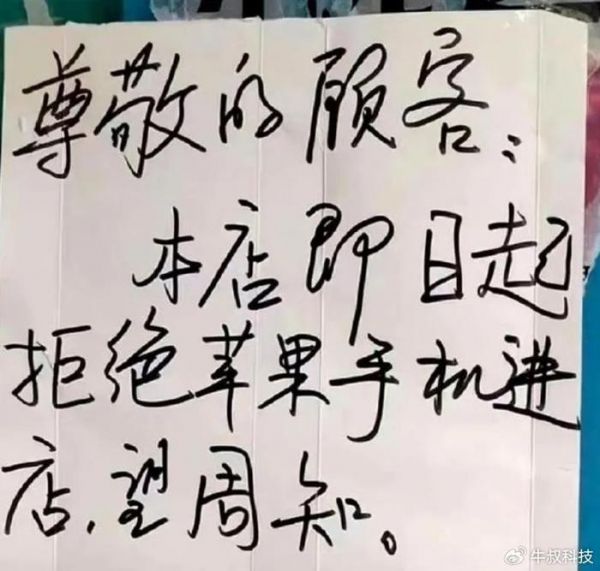 尊敬的顾客:
本店即日起
拒绝苹果手机进
店,望周知。
牛叔科技